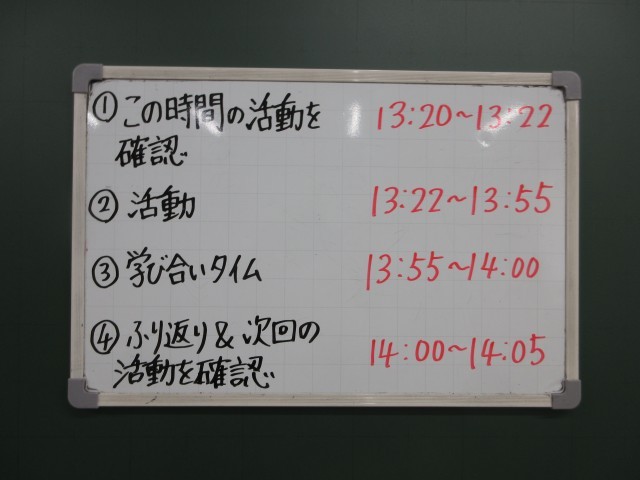 ①この時間の活動を 13:20~13:22
確認
②活動 13:22~13:55
③学び合いタイム 13:55~14:00
④ふり返り&次回の 14:00~14:05
活動を確認